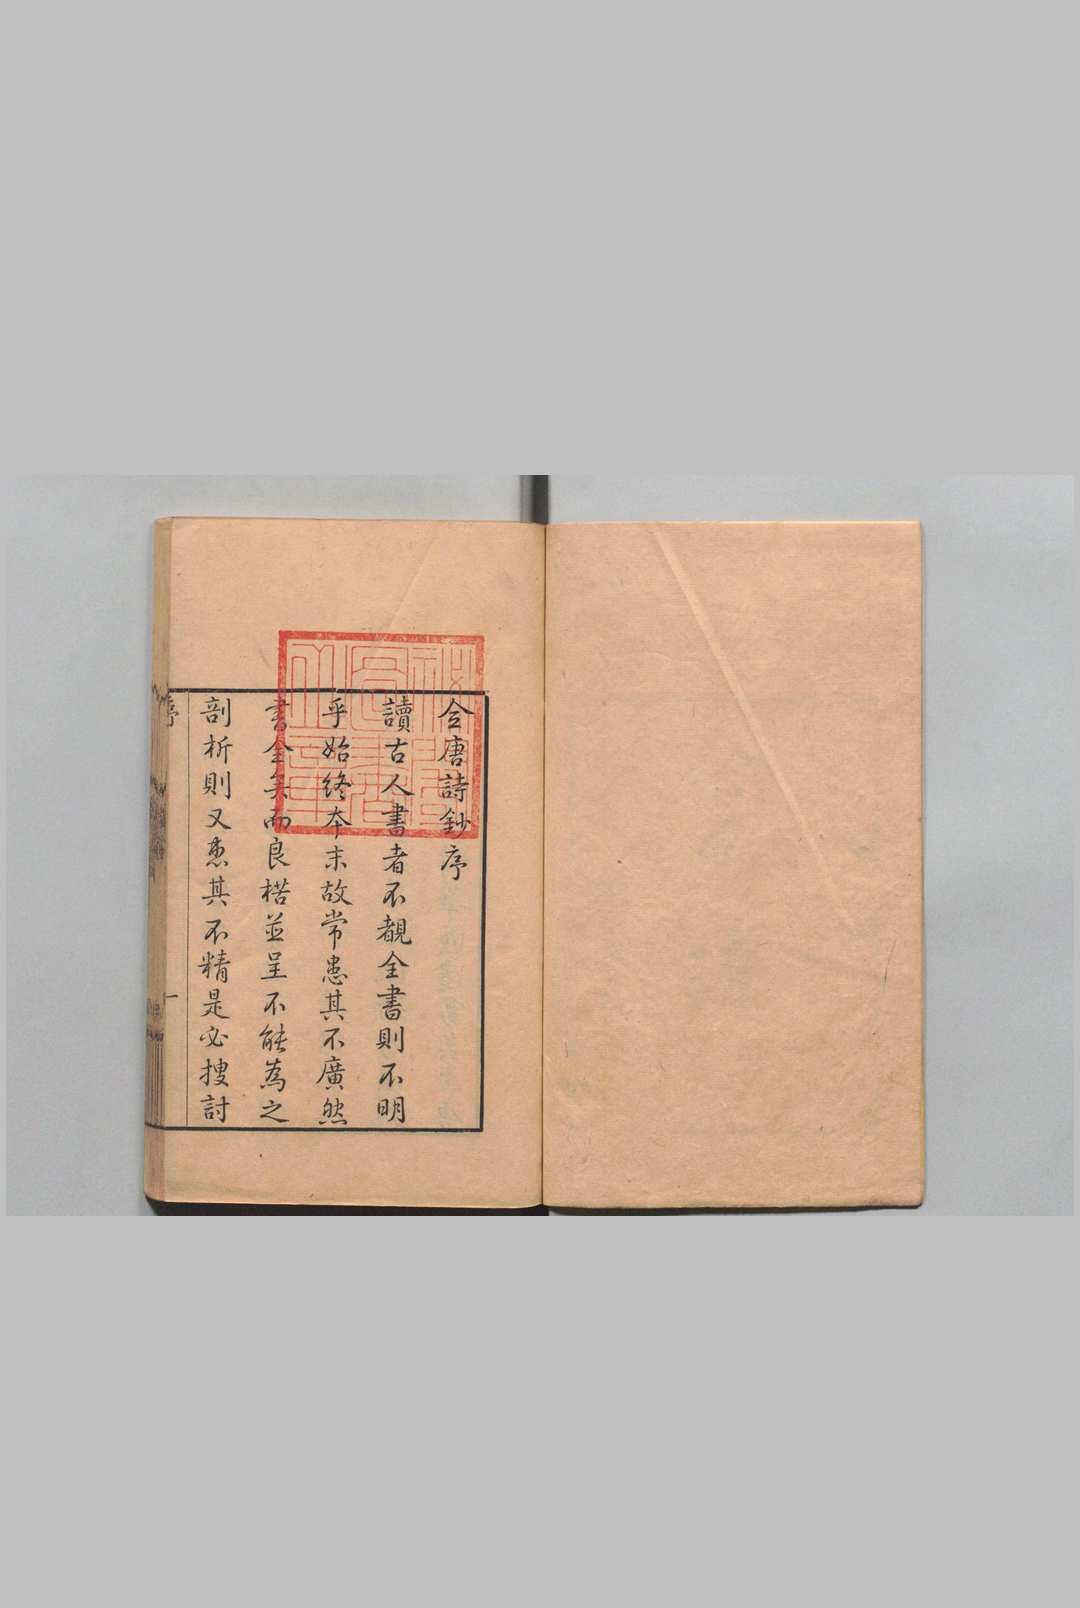 全唐詩鈔序
讀古人書者不覩全書則不明
乎始終本末故常患其不廣然
書全矣而良楛並呈不能為之
剖析則又患其不精是必搜討
序
一